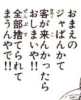 おまえの
ジャばんかて
客が来んかったら
おしまいや!!
全部捨てられて
まうんやで!!